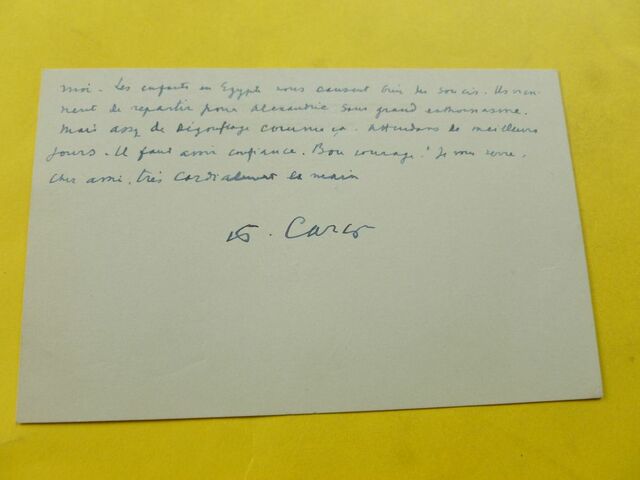 moi. Les enfants en Egypte nous causent bien des soucis. Ils vien-
nent de repartir pour Alexandrie sans grand enthousiasme.
Mais assez de dégonflage comme ça. Attendons de meilleurs
jours. Il faut avoir confiance. Bon courage! Je vous serre,
cher ami, très cordialement la main
F. Carco